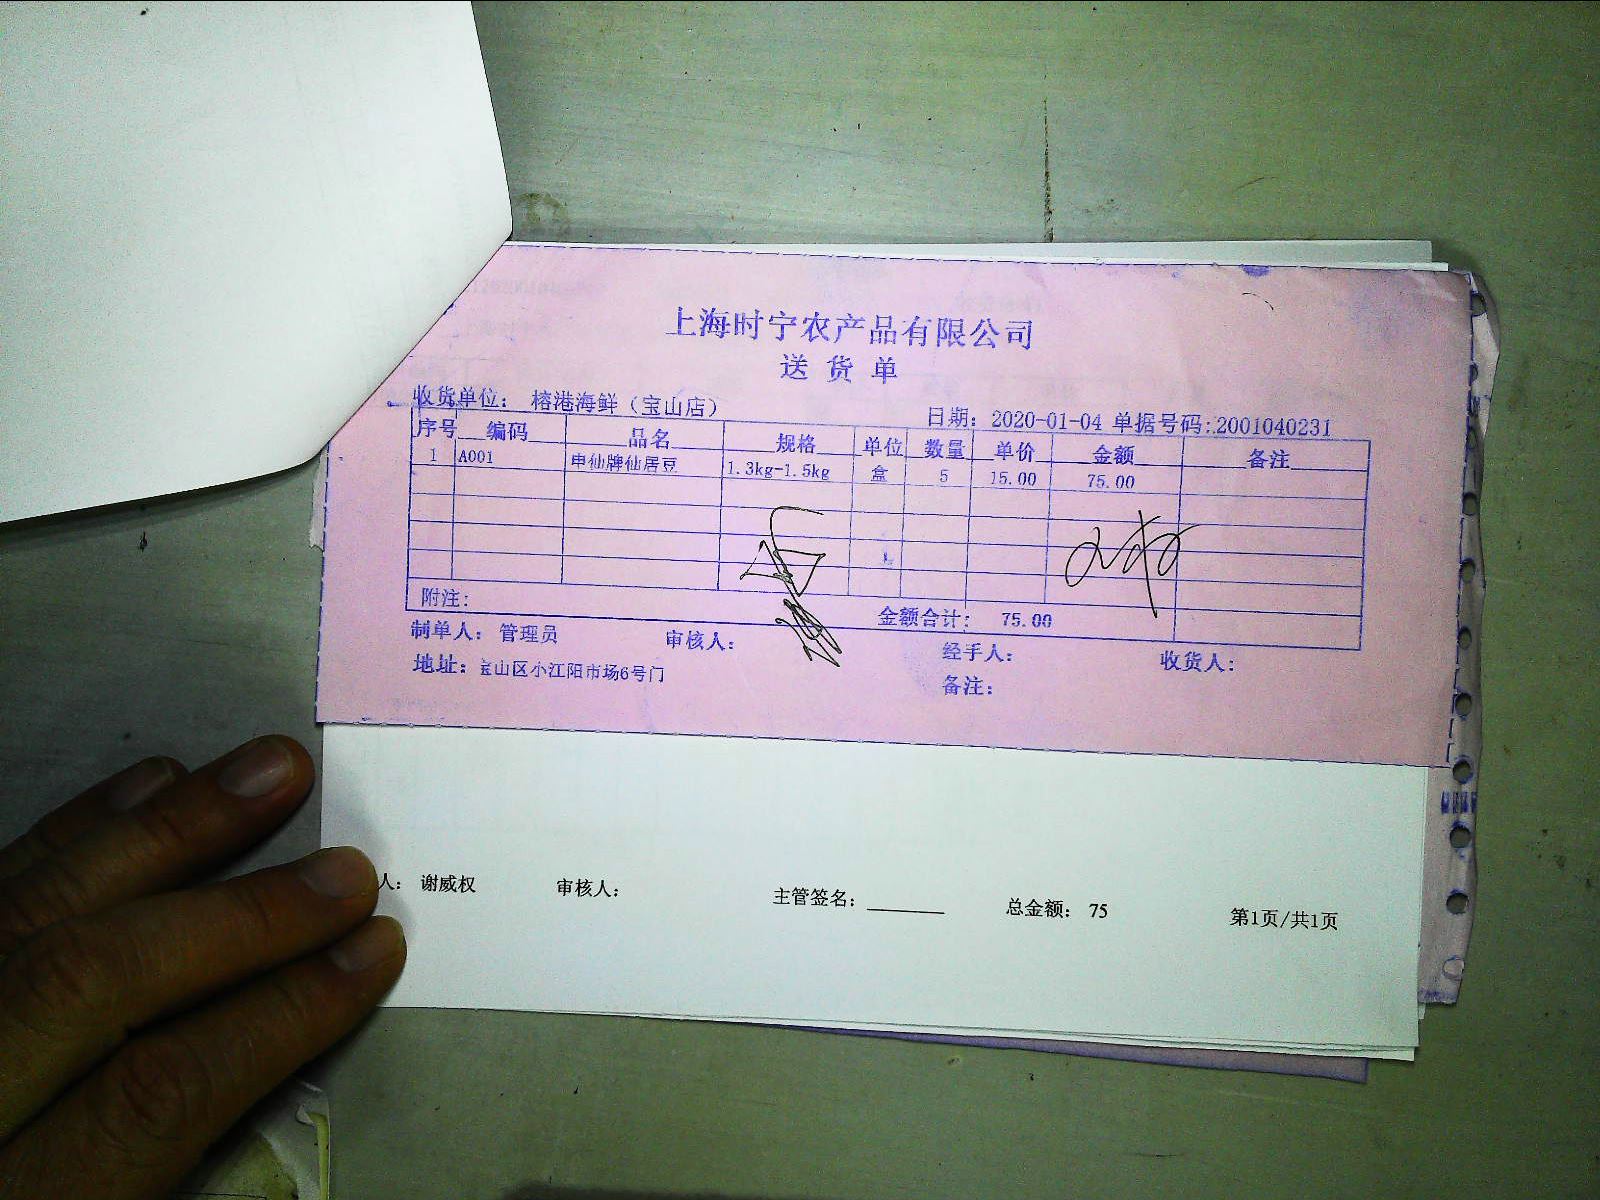 上海时宁农产品有限公司
送货单
收货单位： 榕港海鲜（宝山店） 日期：2020-01-04 单据号码:2001040231
序号 编码 品名 规格 单位 数量 单价 金额 备注
1 A001 申仙牌仙居豆 1.3kg-1.5kg 盒 5 15.00 75.00
附注： 金额合计： 75.00
制单人： 管理员 审核人： 经手人： 收货人：
地址：宝山区小江阳市场6号门 备注：
人： 谢威权 审核人： 主管签名： 总金额： 75 第1页/共1页